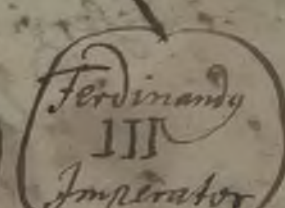 Ferdinandꝰ
III
Imperator